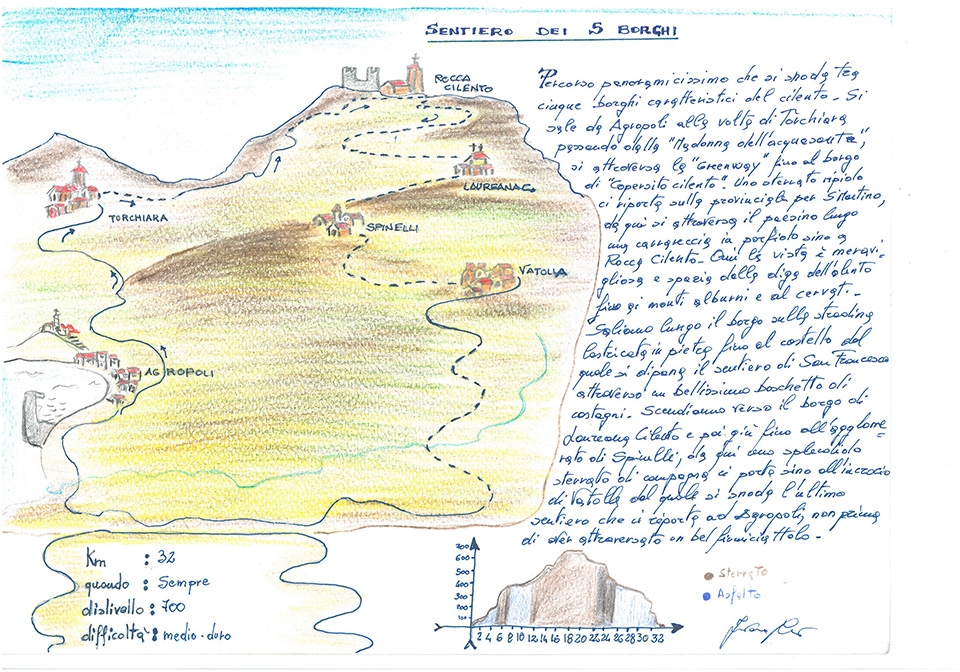 SENTIERO DEI 5 BORGHI
Percorso panoramicissimo che si snoda tra
cinque borghi caratteristici del cilento - Si
sale da Agropoli alla volta di Torchiara
passando dalla "Madonna dell'acquasanta",
si attraversa la "Greenway" fino al borgo
di "Copersito cilento". Uno sterrato ripido
ci riporta sulla provinciale per S. Martino,
da qui si attraversa il paesino lungo
una carrareccia in porfido sino a
Rocca Cilento - Qui la vista è meravi-
gliosa e spazia dalla diga dell'alento
fino ai monti alburni e al cervati. -
Saliamo lungo il borgo sulla stradina
lastricata in pietra fino al castello dal
quale si dipana il sentiero di San Francesco
attraverso un bellissimo boschetto di
castagni - Scendiamo verso il borgo di
Laureana Cilento e poi giù fino all'agglome=
rato di Spinelli, da qui uno splendido
sterrato di campagna ci porta sino all'incrocio
di Vatolla dal quale si snoda l'ultimo
sentiero che ci riporta ad Agropoli, non prima
di aver attraversato un bel fiumiciattolo -
ROCCA
CILENTO
LAUREANA C.
TORCHIARA
SPINELLI
VATOLLA
AGROPOLI
Km : 32
quando : Sempre
dislivello : 700
difficoltà : medio-duro
700
600
500
400
300
200
100
2 4 6 8 10 12 14 16 18 20 22 24 26 28 30 32
Sterrato
Asfalto